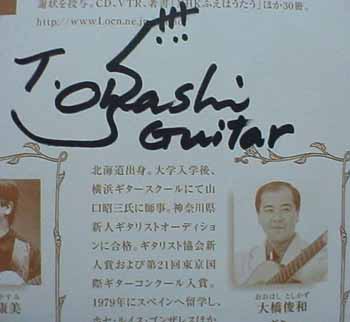 謝状を授与。CD、VTR、著書「NHKふえはうたう」ほか30冊。
http://www1.ocn.ne.jp/
T. Ohashi
Guitar
北海道出身。大学入学後、
横浜ギタースクールにて山
口昭三氏に師事。神奈川県
新人ギタリストオーディショ
ンに合格。ギタリスト協会新
人賞および第21回東京国
際ギターコンクール入賞。
1979年にスペインへ留学し、
ホセ・ルイス・ゴンザレスほか
康美
おおはし としかず
大橋俊和